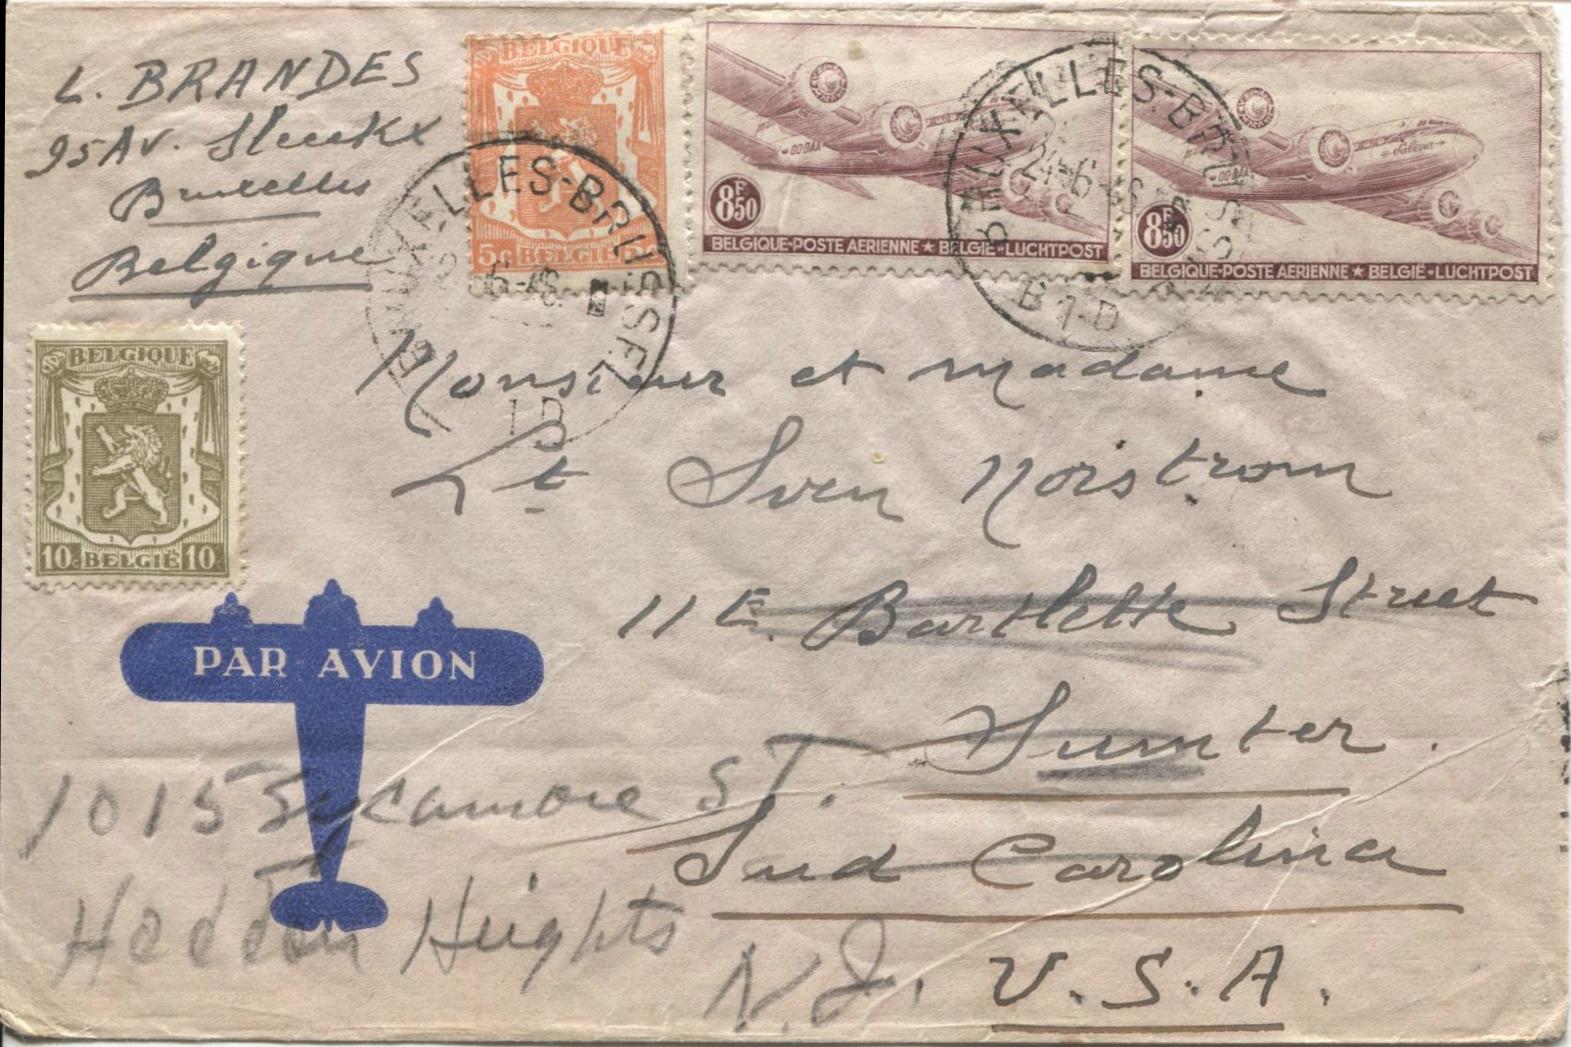 L. BRANDES
95 Av. Sleeckx
Bruxelles
Belgique
BELGIQUE
5c BELGIË 5c
8F50
BELGIQUE-POSTE AERIENNE ★ BELGIË-LUCHTPOST
OO-DAA
sabena
8F50
BELGIQUE-POSTE AERIENNE ★ BELGIË-LUCHTPOST
BRUXELLES-BRUSSEL
1D
BRUXELLES-BRUSSEL
24-6
B1-D
BELGIQUE
10c BELGIË 10c
PAR AVION
Monsieur et madame
Lt Sven Norstrom
11 E. Bartlette Street
Sumter.
Sud Carolina
U.S.A.
1015 Sycamore ST.
Haddon Heights
N.J.